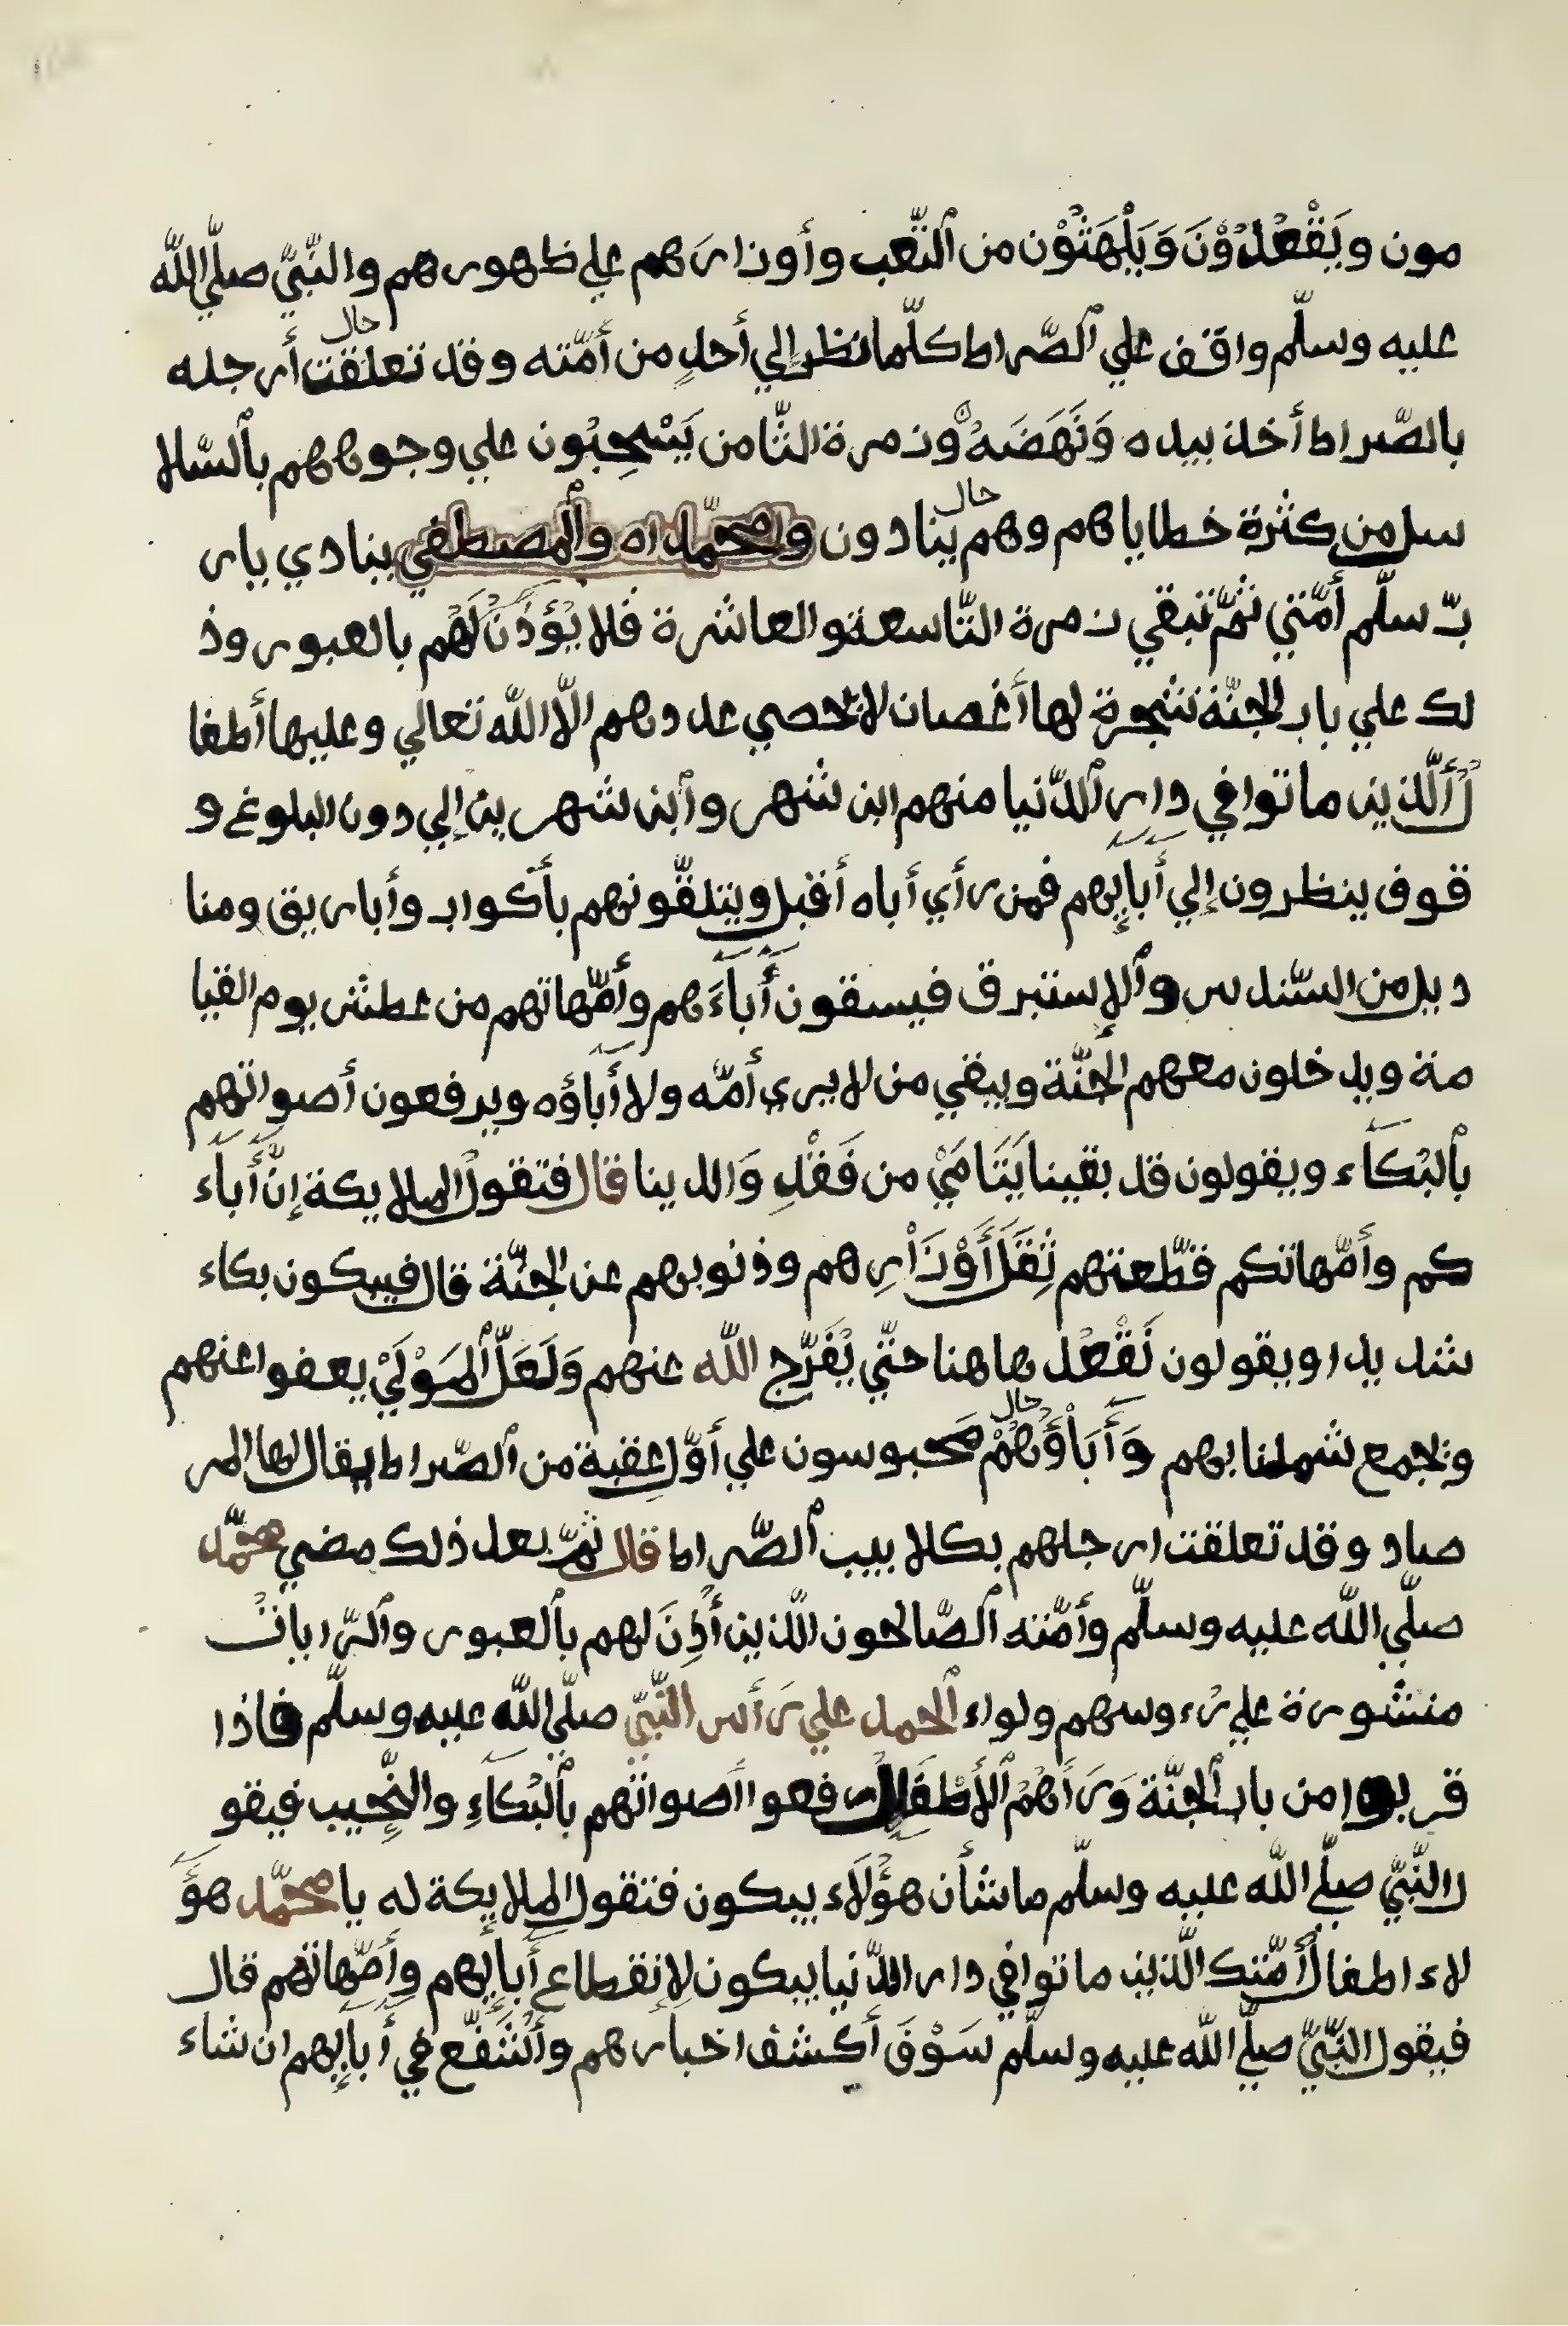 مون ويَقْعُدُوْنَ وَيَلْهَثُوْن من ٱلتّعب وأوزارَهم علي ظهورهم والنّبيّ صلّي اللّه
عليه وسلّم واقف علي ٱلصّراط كلّما نظر إلي أحدٍ من أمّته وقد تعلقت أرجله
حال
بالصّراط أخذ بيده وَنَهَضَهُ وزمرة الثّامن يَسْحِبُون علي وجوههم بٱلسّلا
سل من كثرة خطاياهم وهم ينادون وامحمّداه وٱلمصطفي ينادي يار
حال
بّ سلّم أمّتي ثمّ تبقي زمرة التّاسعة والعاشرة فلا يُؤْذَنُ لَهُم بالعبور وذ
لك علي باب الجنّة شجرة لها أغصان لا يحصي عددهم الّا اللّه تعالي وعليها أطفا
لُ ألّذين ماتوا في دار ٱلدّنيا منهم ابن شهر وٱبن شهرين إلي دون البلوغ و
قوف ينظرون إلي أَبآيِهم فمن رأي أباه أقبل ويتلقّونهم بأكواب وأباريق ومنا
ديل من السّندس وٱلإستبرق فيسقون أَبآءَهم وأمّهاتهم من عطش يوم القيا
مة ويدخلون معهم الجنّة ويبقي من لا يري أمّه ولا أَبآؤه ويرفعون أصواتهم
بٱلبُكآء ويقولون قد بقينا يَتَامَيْ من فَقْدِ وَالدينا قال فتقول الملايكة إنّ أَبآء
كم وأمّهاتكم قطّعتهم ثِقَلَ أَوْزَاْرِهم وذنوبهم عن الجنّة قال فيبكون بكاء
شديدا ويقولون نَقْعُد هاهنا حتّي يُفَرّج اللّه عنهم وَلَعَلّ ٱلمَوْلَيْ يعفوا عنهم
وتجمع شملنا بهم وَأَبَآؤُهُمْ محبوسون علي أوّل عقبة من ٱلصّراط يقال لها المر
حال
صاد وقد تعلقت ارجلهم بكلاليب ٱلصّراط قال ثمّ بعد ذلك مضي محمّد
صلّي اللّه عليه وسلّم وأمّته ٱلصّالحون الّذين أُذِنَ لهم بٱلعبور وٱلرّايات
منشورة علي رءوسهم ولواء ٱلحمد علي رَأس النّبيّ صلّي اللّه عليه وسلّم فاذا
قربوا من باب ٱلجنّة وَرَأَهُمْ ٱلأَطْفَال رفعوا أصواتهم بٱلبُكآءِ والنّحِيب فيقو
ل النّبيّ صلّي اللّه عليه وسلّم ما شأن هؤُلَاء يبكون فتقول الملايكة له يا محمّد هؤَ
لاء اطفال أمّتك الّذين ماتوا في دار الدّنيا يبكون لإنقطاع أَبآيِهم وأمّهاتهم قال
فيقول النّبيّ صلّي اللّه عليه وسلّم سَوْفَ أكشف اخبارهم وأتشفّع في أبآيِهم ان شاء